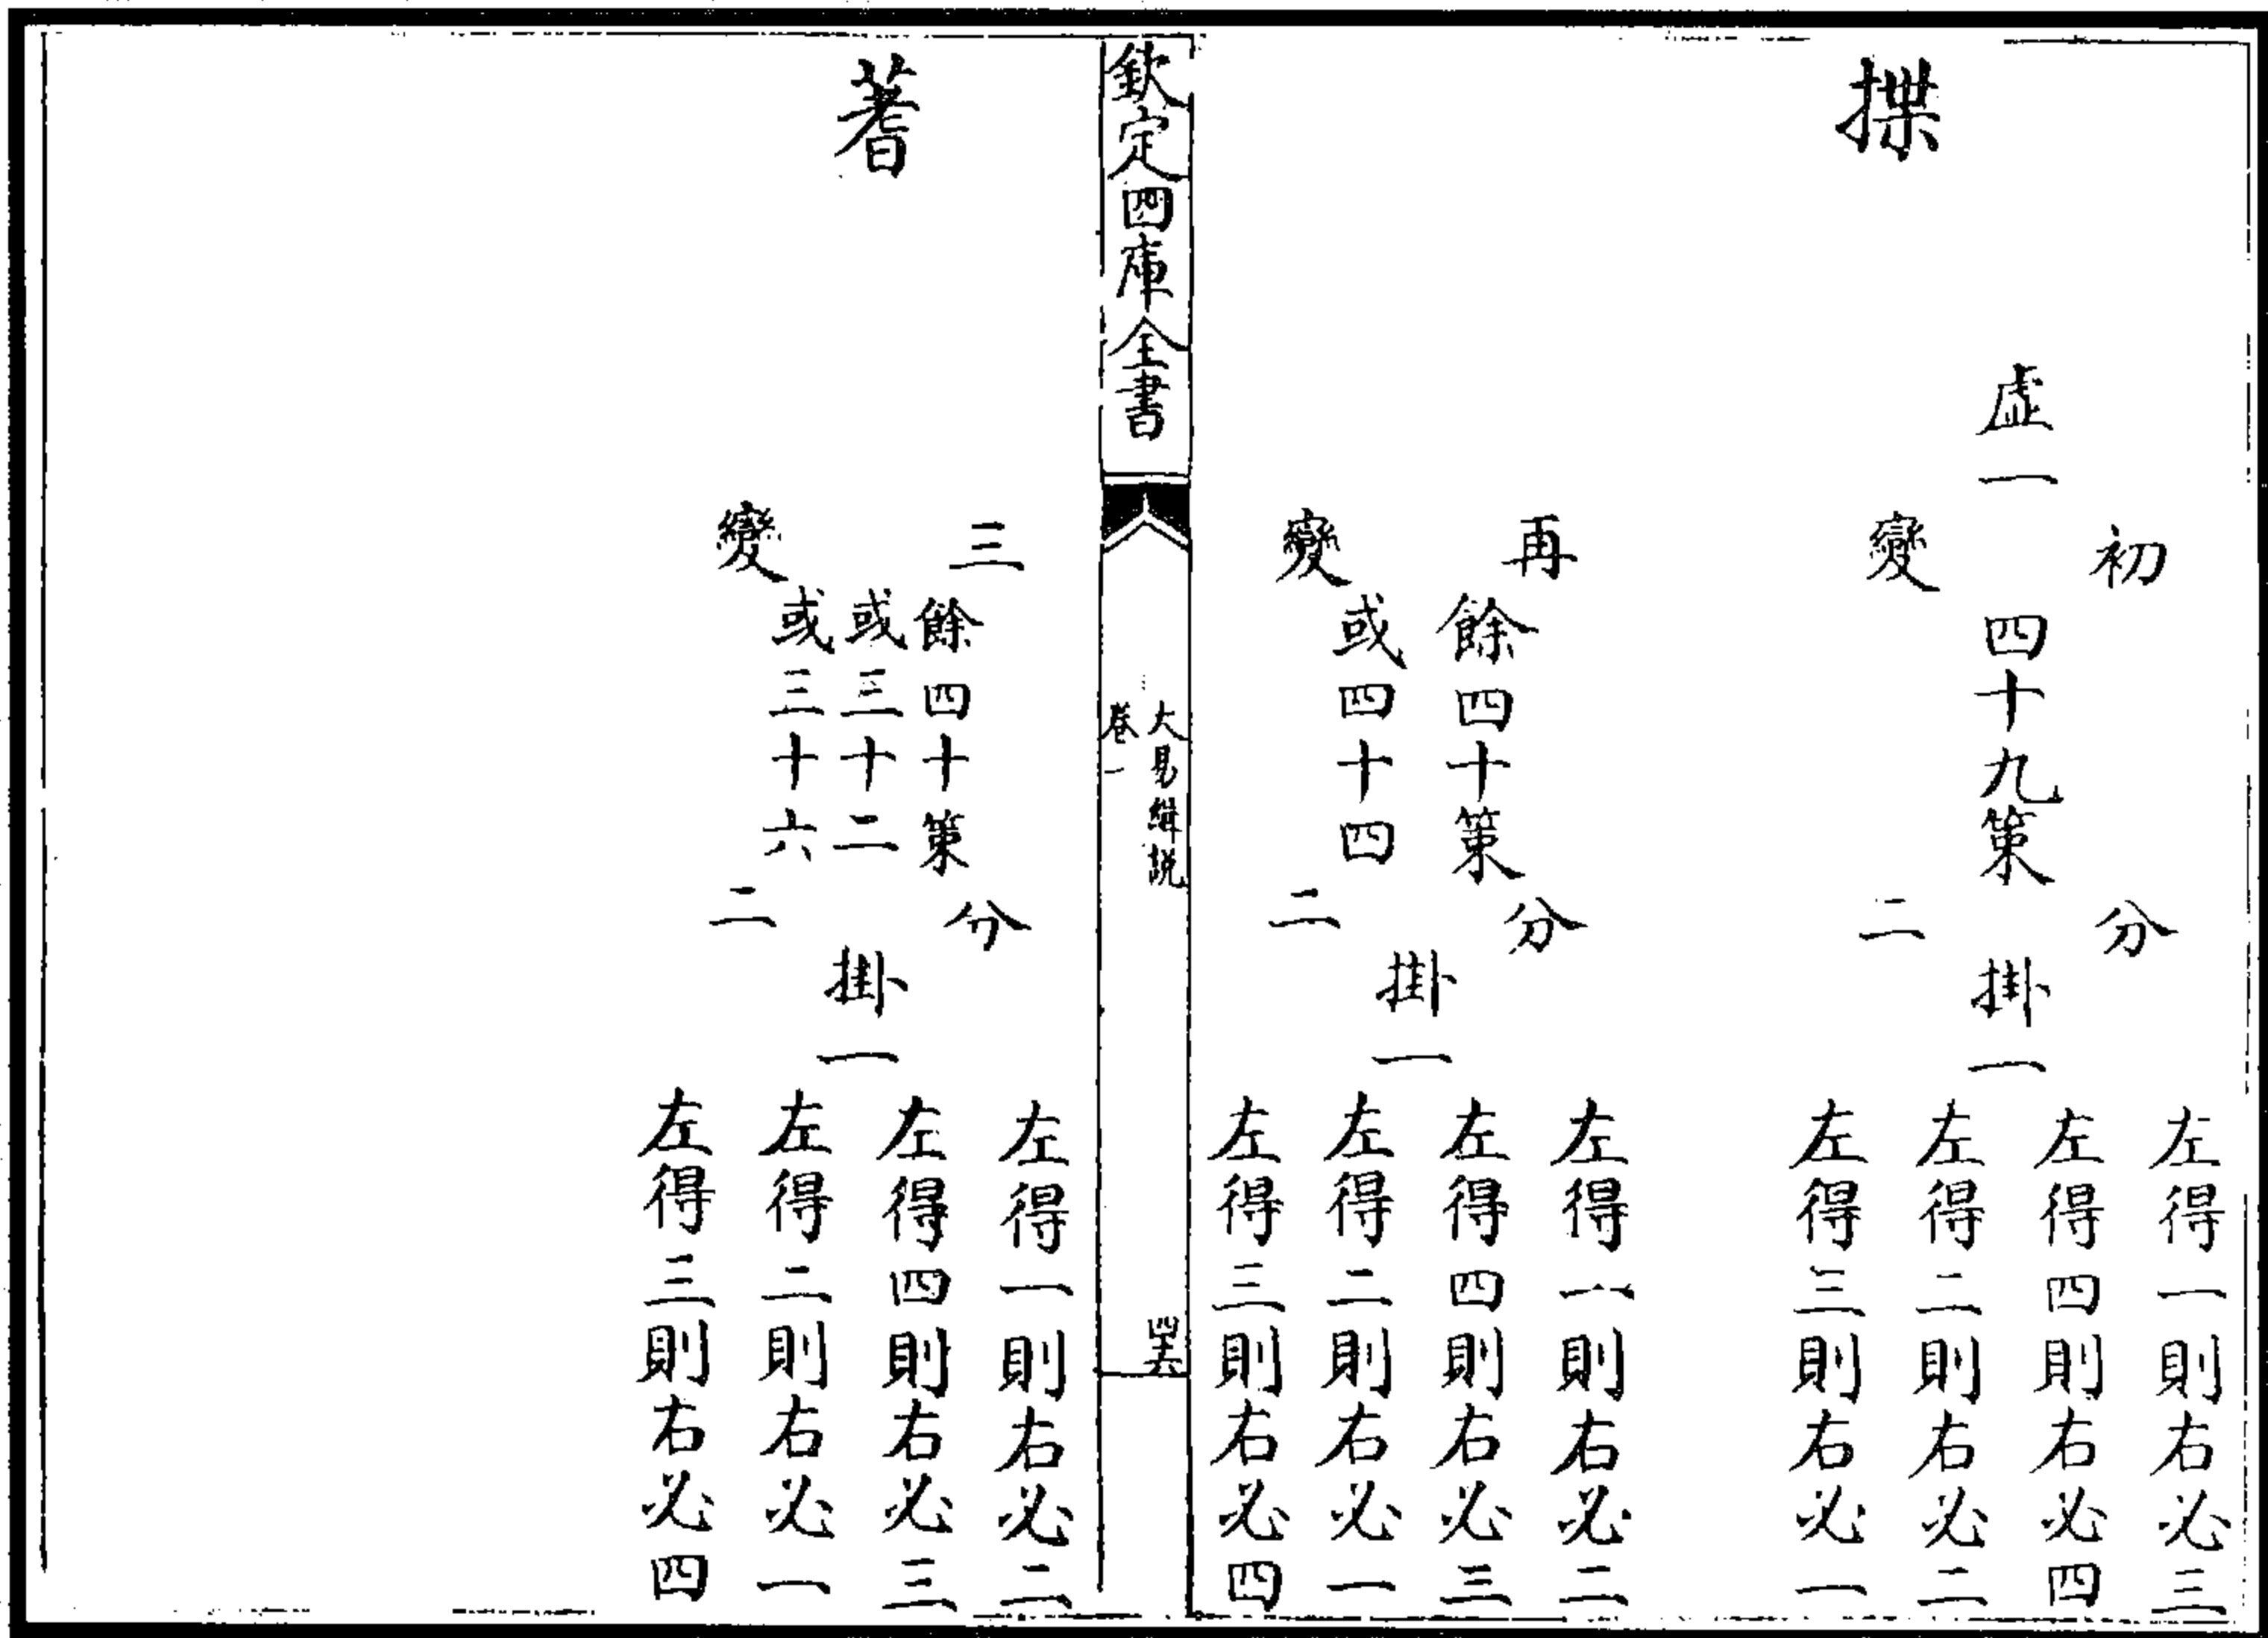 揲
虛一
初變
四十九策
分二
掛一
左得一則右必三
左得四則右必四
左得二則右必二
左得三則右必一
再變
餘四十策
或四十四
分二
掛一
左得一則右必二
左得四則右必三
左得二則右必一
左得三則右必四
欽定四庫全書
大易緝說
卷一
四六
蓍
三變
餘四十策
或三十二
或三十六
分二
掛一
左得一則右必二
左得四則右必三
左得二則右必一
左得三則右必四